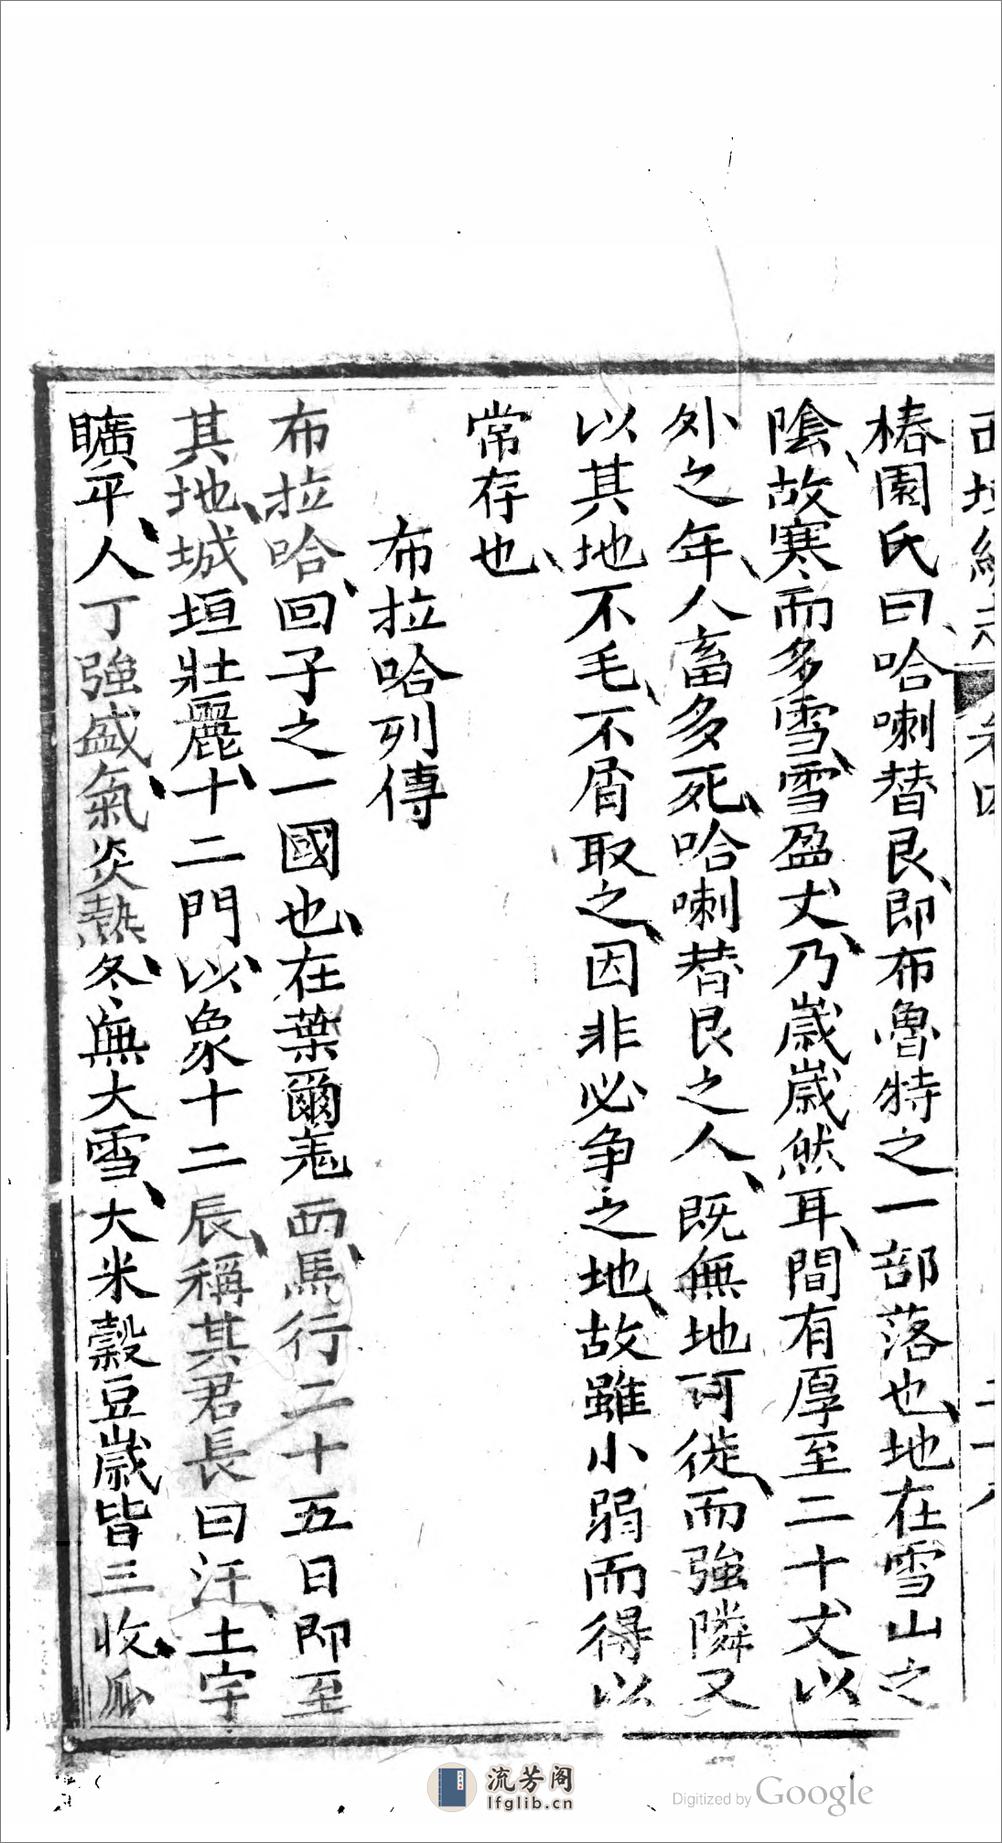 椿園氏曰哈喇替艮即布魯特之一部落也地在雪山之
陰故寒而多雪雪盈丈乃歲歲然耳間有厚至二十丈以
外之年人畜多死哈喇替艮之人既無地可徙而強隣又
以其地不毛不屑取之因非必争之地故雖小弱而得以
常存也
布拉哈列傳
布拉哈回子之一國也在葉爾羌西馬行二十五日即至
其地城垣壯麗十二門以象十二辰稱其君長曰汗土宇
曠平人丁強盛氣炎熱冬無大雪大米穀豆歲皆三收瓜
流芳阁
lfglib.cn
Digitized by Google